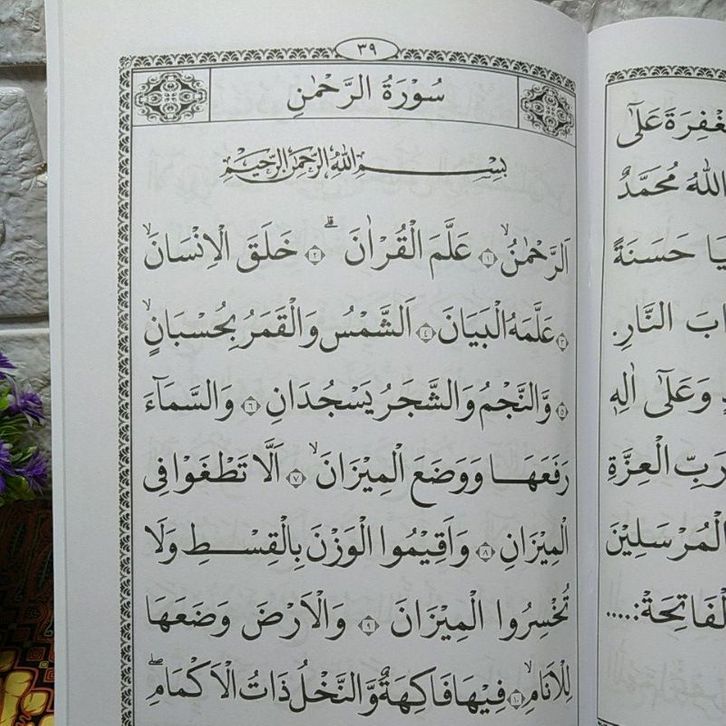 ٣٩
سُوْرَةُ الرَّحْمٰنِ
بِسْمِ اللّٰهِ الرَّحْمٰنِ الرَّحِيْمِ
اَلرَّحْمٰنُۙ ۝١ عَلَّمَ الْقُرْاٰنَۗ ۝٢ خَلَقَ الْاِنْسَانَۙ
۝٣ عَلَّمَهُ الْبَيَانَ ۝٤ اَلشَّمْسُ وَالْقَمَرُ بِحُسْبَانٍۙ
۝٥ وَّالنَّجْمُ وَالشَّجَرُ يَسْجُدَانِ ۝٦ وَالسَّمَآءَ
رَفَعَهَا وَوَضَعَ الْمِيْزَانَۙ ۝٧ اَلَّا تَطْغَوْا فِى
الْمِيْزَانِ ۝٨ وَاَقِيْمُوا الْوَزْنَ بِالْقِسْطِ وَلَا
تُخْسِرُوا الْمِيْزَانَ ۝٩ وَالْاَرْضَ وَضَعَهَا
لِلْاَنَامِۙ ۝١٠ فِيْهَا فَاكِهَةٌ وَّالنَّخْلُ ذَاتُ الْاَكْمَامِۖ
عَلٰى
اللّٰهُ مُحَمَّدٌ
حَسَنَةً
النَّارِ.
وَعَلٰى اٰلِهٖ
رَبِّ الْعِزَّةِ
الْمُرْسَلِيْنَ
الْفَاتِحَةْ:....